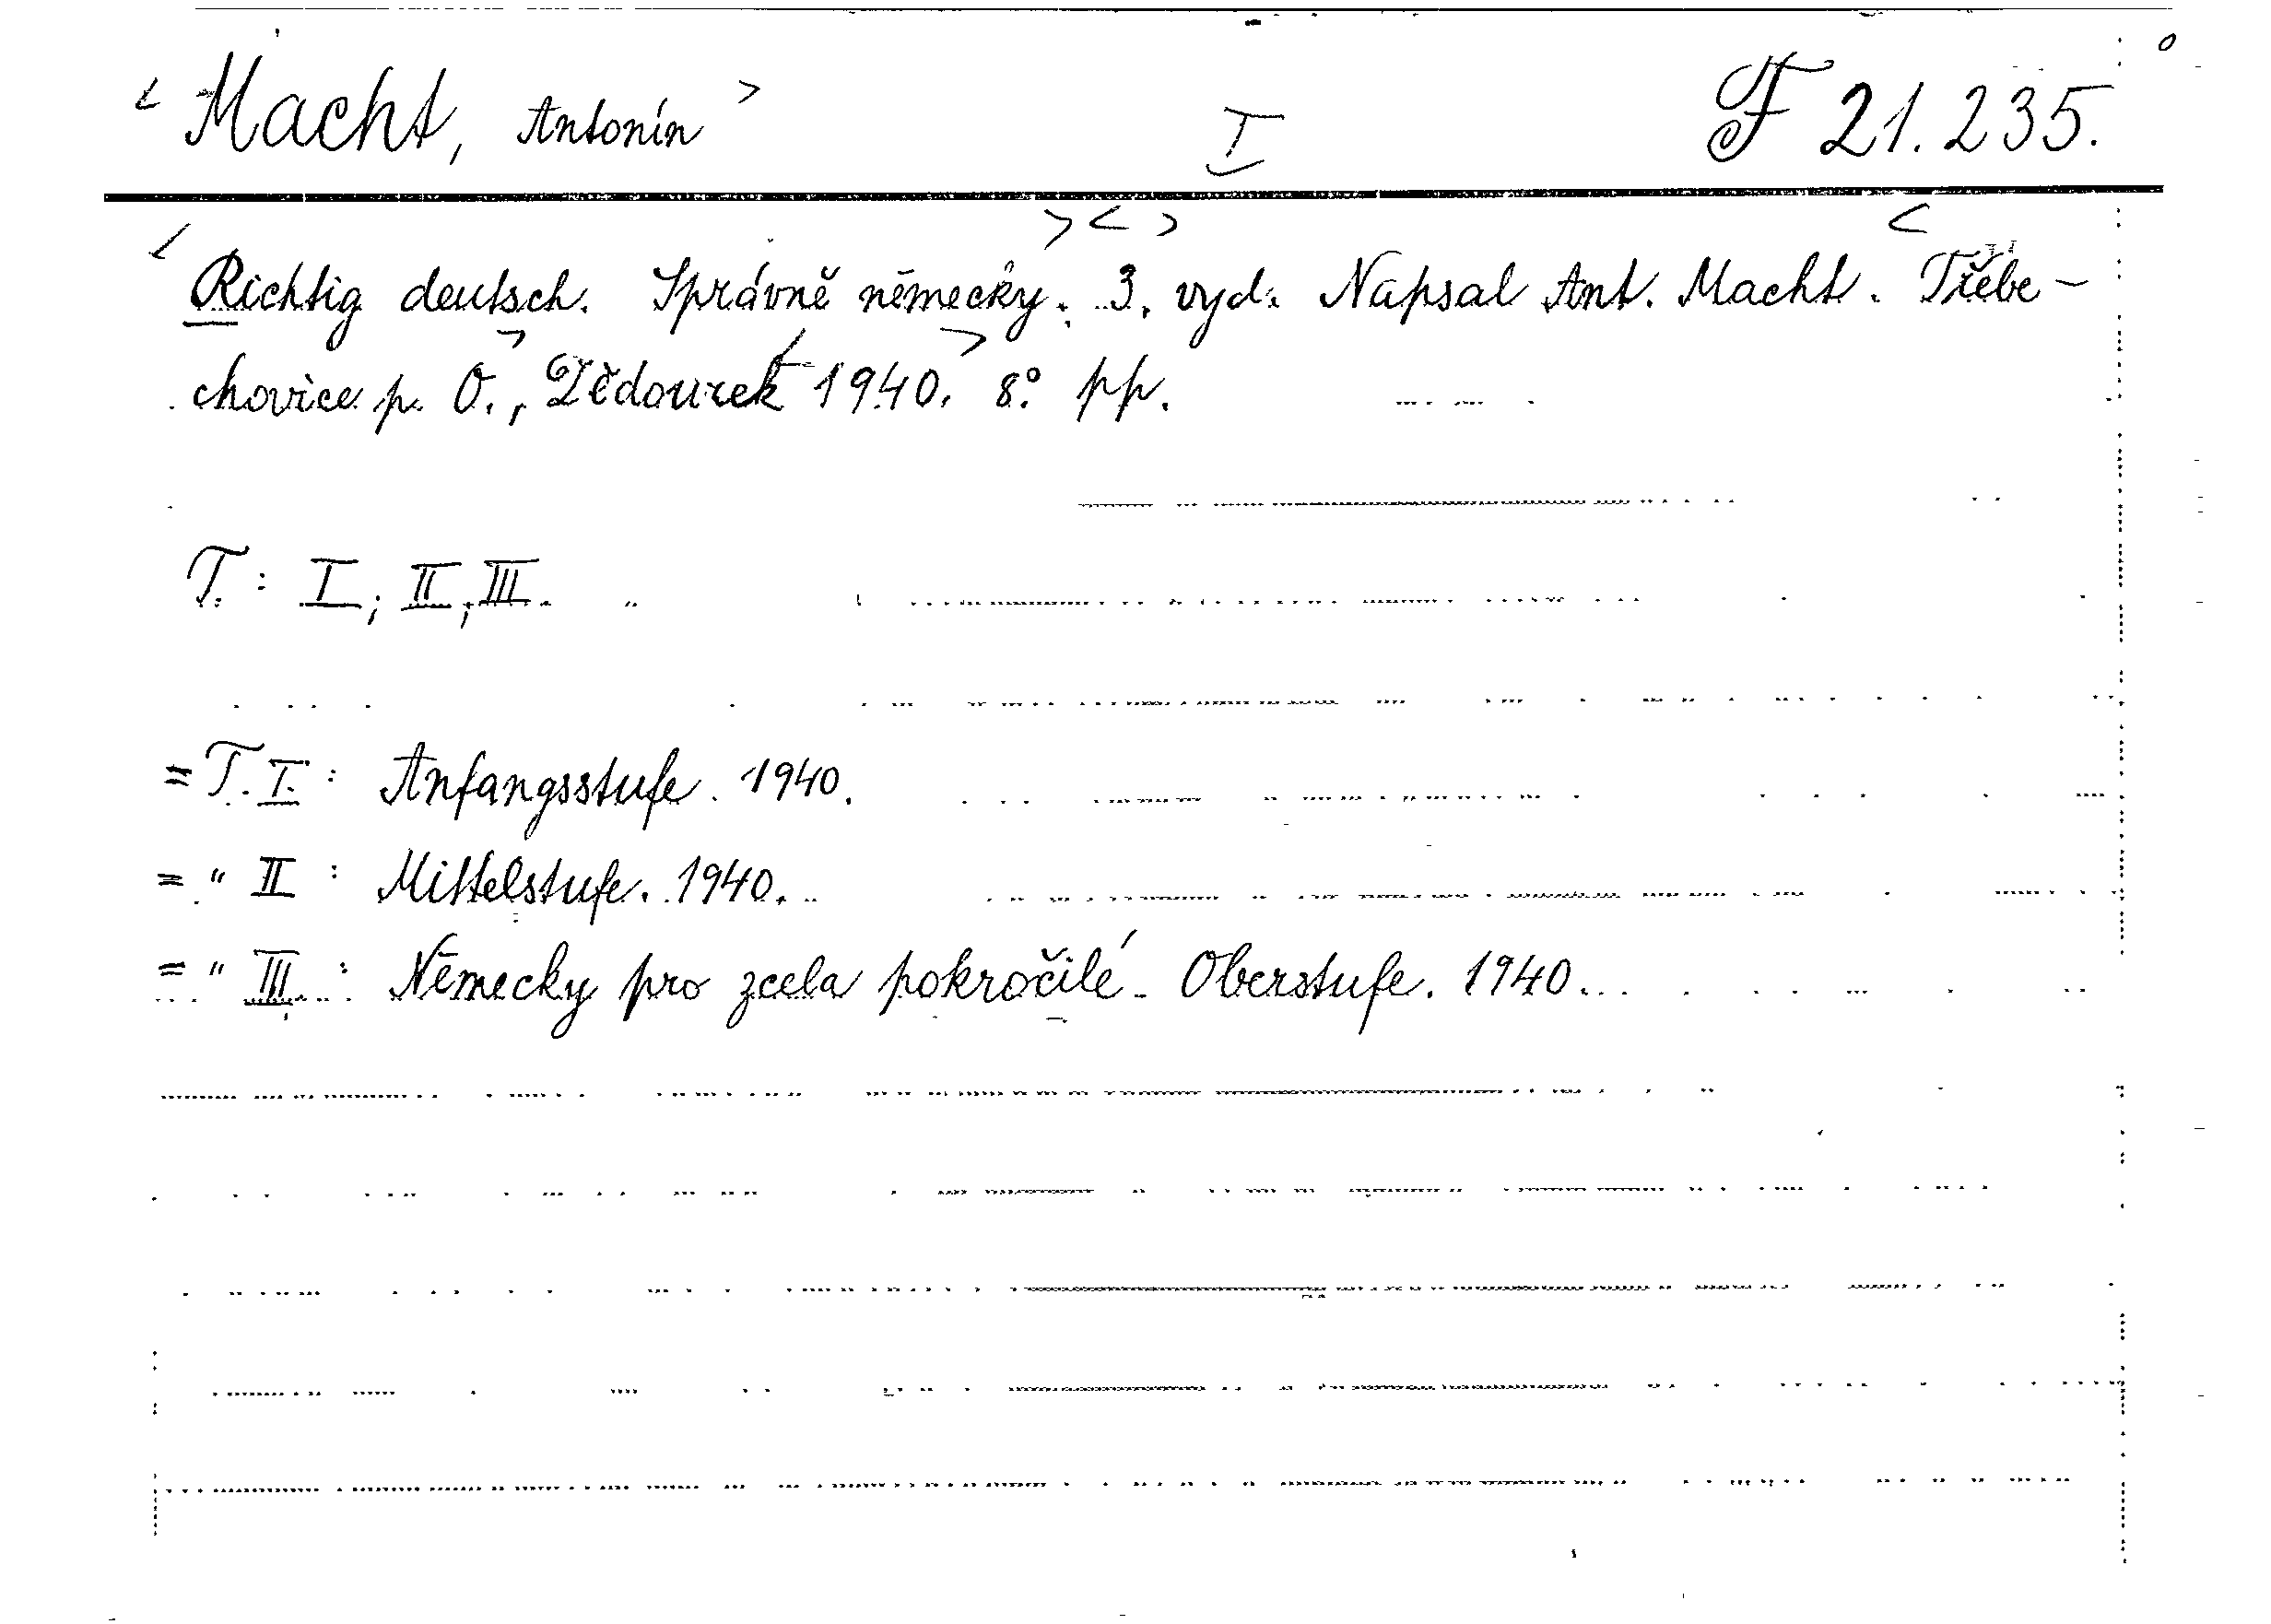 < Macht, Antonín > I F 21.235.
< Richtig deutsch. Správně německy. > 3. < vyd. > Napsal Ant. Macht. < Třebe-
chovice p. O. >, Dědourek 1940. > 8° pp.
T: I, II, III.
= T. I: Anfangsstufe. 1940.
= " II: Mittelstufe. 1940.
= " III: Německy pro zcela pokročilé. Oberstufe. 1940.